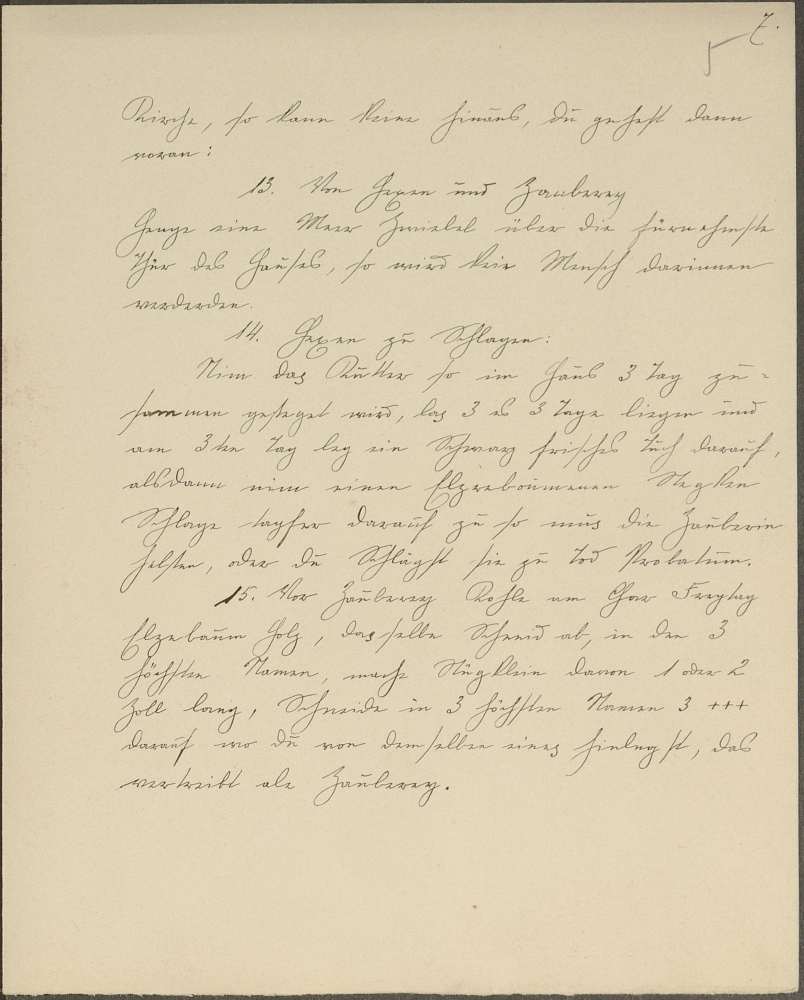 7.
5
Kirche, so kann keine hinaus, du gehest dann
voran:
13. Von Hexen und Zauberey
Henge eine Meer Zwiebel über die fürnehmste
Thür des Hauses, so wird kein Mensch darinnen
verderden.
14. Hexen zu Schlagen:
Nim das Kutter so im Haus 3 Tag zu-
sammen gefeget wird, las 3 es 3 Tage liegen und
am 3ten Tag leg ein Schwarz frisches Tuch darauf,
alsdann nim einen Elzenbaumenen Stegken
Schlage tapfer darauf zu so mus die Zauberin
helfen, oder du Schlägst sie zu Tod Probatum.
15. Vor Zauberey Kohle am Char Freytag
Elzebaum Holz, dasselbe Schneid ab, in den 3
höchsten Namen, mache Stügklein davon 1 oder 2
Zoll lang, Schneide in 3 höchsten Namen 3 +++
darauf wo du von demselben eines hinlegst, das
vertreibt ale Zauberey.